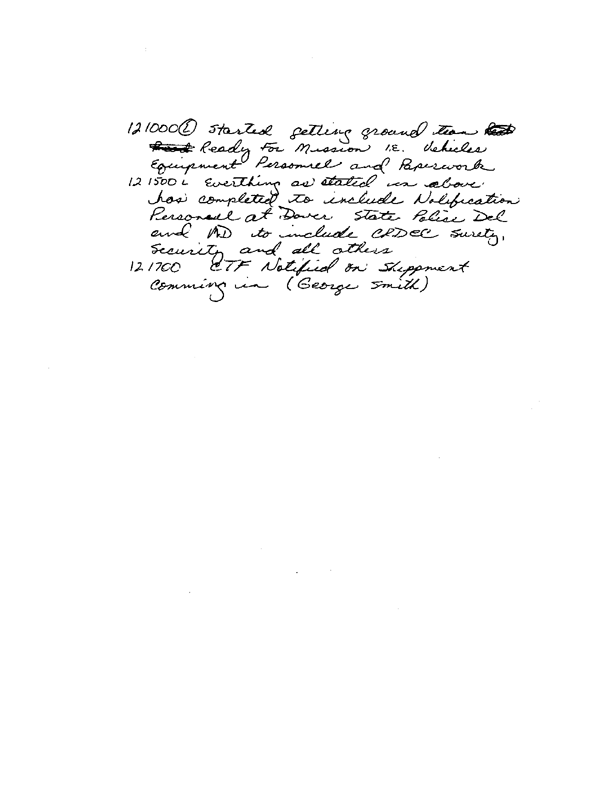 121000Ⓛ Started getting ground team
Ready For Mission I.E. Vehicles
Equipment Personnel and Paperwork
121500L Everthing as stated in above
has completed to include Notification
Personnel at Dover State Police Del
and MD to include CRDEC Surety,
Security and all others
121700 ETF Notified on Shippment
Comming in (George Smith)